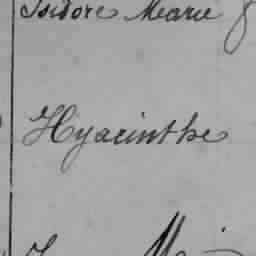 Isidore Marie
Hyacinthe